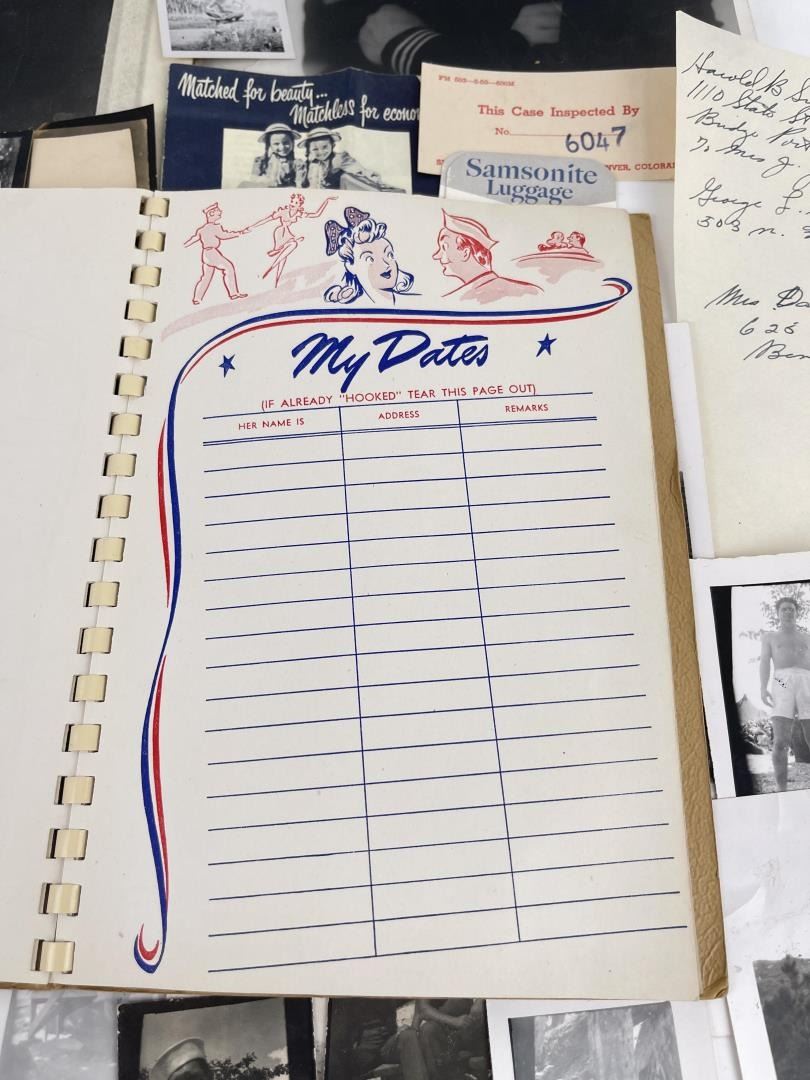 Matched for beauty...
Matchless for
FM 503—5-50—600M
This Case Inspected By
No. 6047
Samsonite
Luggage
Harold B
1110 State St
Bridge Port
To Mrs J.
George L.
503 n.
Mrs
625
My Dates
(IF ALREADY "HOOKED" TEAR THIS PAGE OUT)
HER NAME IS ADDRESS REMARKS